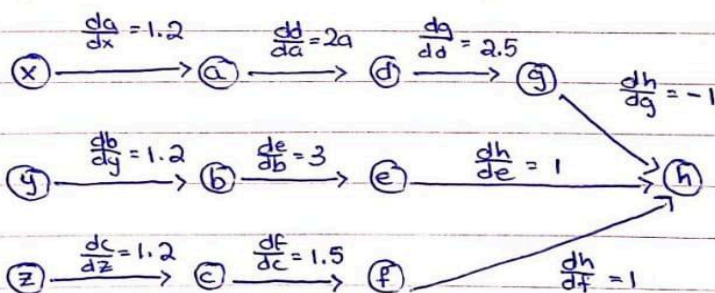 da/dx = 1.2 dd/da = 2a dg/dd = 2.5
x a d g
dh/dg = -1
db/dy = 1.2 de/db = 3 dh/de = 1
y b e h
dc/dz = 1.2 df/dc = 1.5
z c f
dh/df = 1